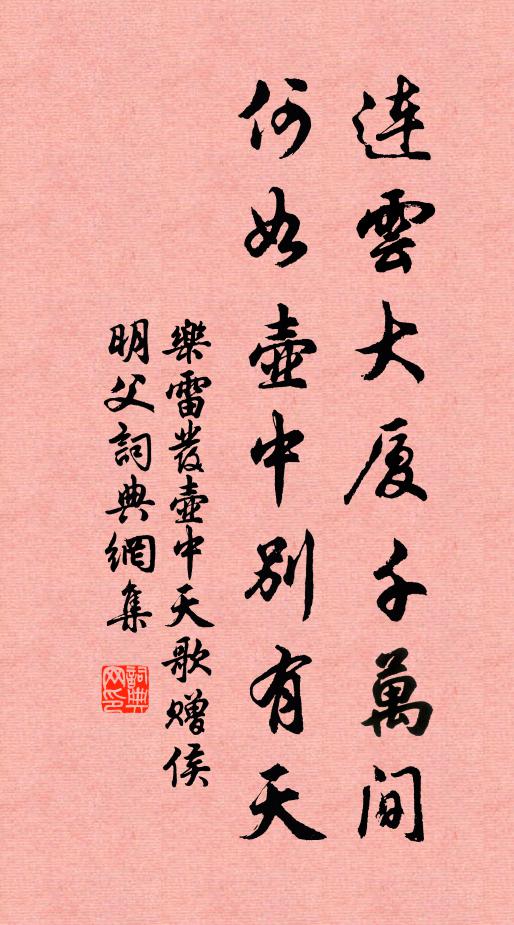 連雲大厦千萬间
何如壺中别有天
樂雷發壺中天歌赠侯
明父詞典網集
詞典网印